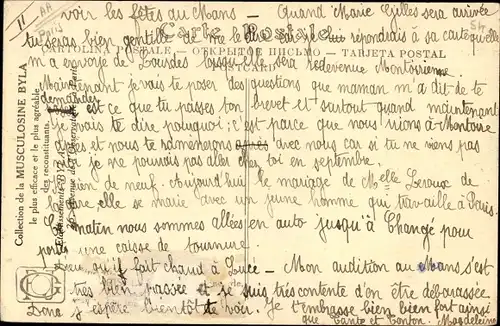 voir les fêtes au Mans - Quand Marie Gilles sera arrivée
tu seras bien gentille de me le dire car je lui répondrais à sa carte qu'elle
m'a envoyé de Lourdes lorsqu'elle sera redevenue
Maintenant je vais te poser des questions que maman m'a dit de te
demander est ce que tu passes ton brevet et surtout quand maintenant
je vais te dire pourquoi ; c'est parce que nous irions à
et nous te ramènerons avec nous car si tu ne viens pas
je ne pourrais pas aller chez toi en septembre.
de neuf. Aujourd'hui le mariage de Melle Leroux de
elle se marie avec un jeune homme qui travaille à Paris.
Ce matin nous sommes allées en auto jusqu'à Changé pour
porter une caisse de tournure.
qu'il fait chaud à Lucé - Mon audition au Mans s'est
très bien passée et je suis très contente d'en être débarassée
Donc j'espère bientôt te voir. Je t'embrasse bien bien fort ainsi
que Tante et Tonton. Magdeleine
CARTOLINA POSTALE - ОТКРЫТОЕ ПИСЬМО - TARJETA POSTAL
POSTCARD
Collection de la MUSCULOSINE BYLA
le plus efficace et le plus agréable
des reconstituants.
11
AR
Paris